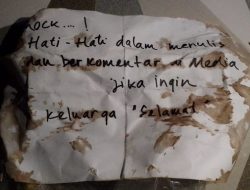 ock.... !
Hati-Hati dalam menulis
dan berkomentar di Media
jika ingin
keluarga "Selamat"